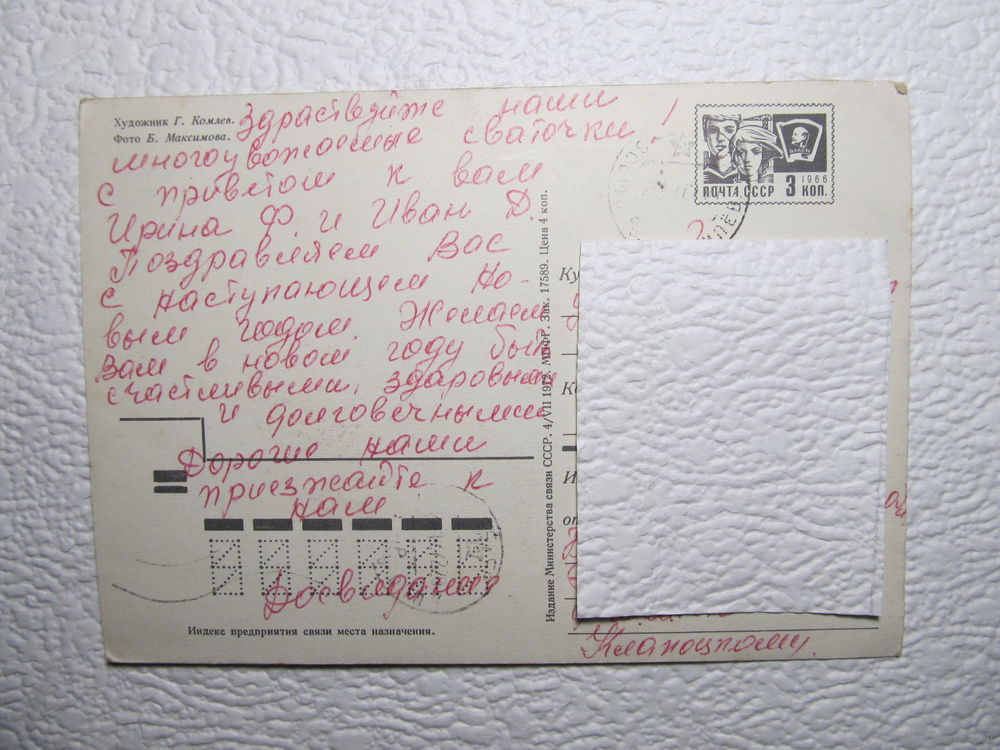 Художник Г. Комлев.
Фото Б. Максимова.
Здраствуйте наши
многоуважаемые сваточки!
с приветом к вам
Ирина Ф. и Иван Д.
Поздравляем Вас
с наступающем Но-
вым годом. Желаем
Вам в новом году быть
счастливыми, здоровыми
и долговечными
Дорогие наши
приезжайте к
нам.
Досвидания
Индекс предприятия связи места назначения.
Издание Министерства связи СССР. 4/VII 1972. МПФГ. Зак. 17589. Цена 4 коп.
ВЛКСМ
1966
ПОЧТА СССР 3 КОП.
Ку
К
И
от